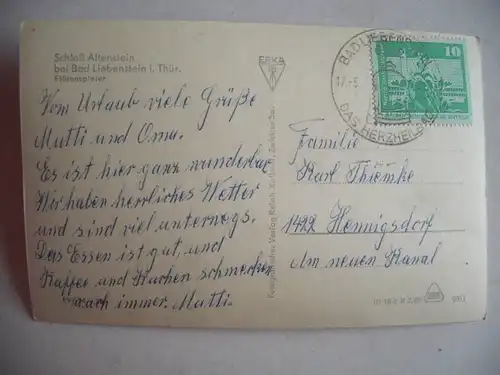 Schloß Altenstein
bei Bad Liebenstein i. Thür.
Flötenspieler
Vom Urlaub viele Grüße
Mutti und Oma.
Es ist hier ganz wunderbar
Wir haben herrliches Wetter
und sind viel unterwegs.
Das Essen ist gut, und
Kaffee und Kuchen schmecken
auch immer. Mutti.
ERKA
BAD LIEBENS
DAS HERZHEILBAD
10
Familie
Karl Thiemke
1422 Hennigsdorf
Am neuen Kanal